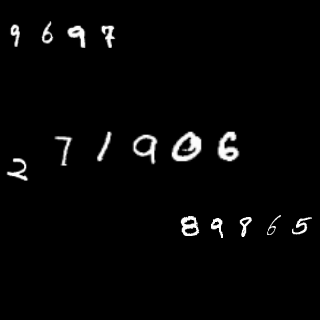 9697
271906
89865